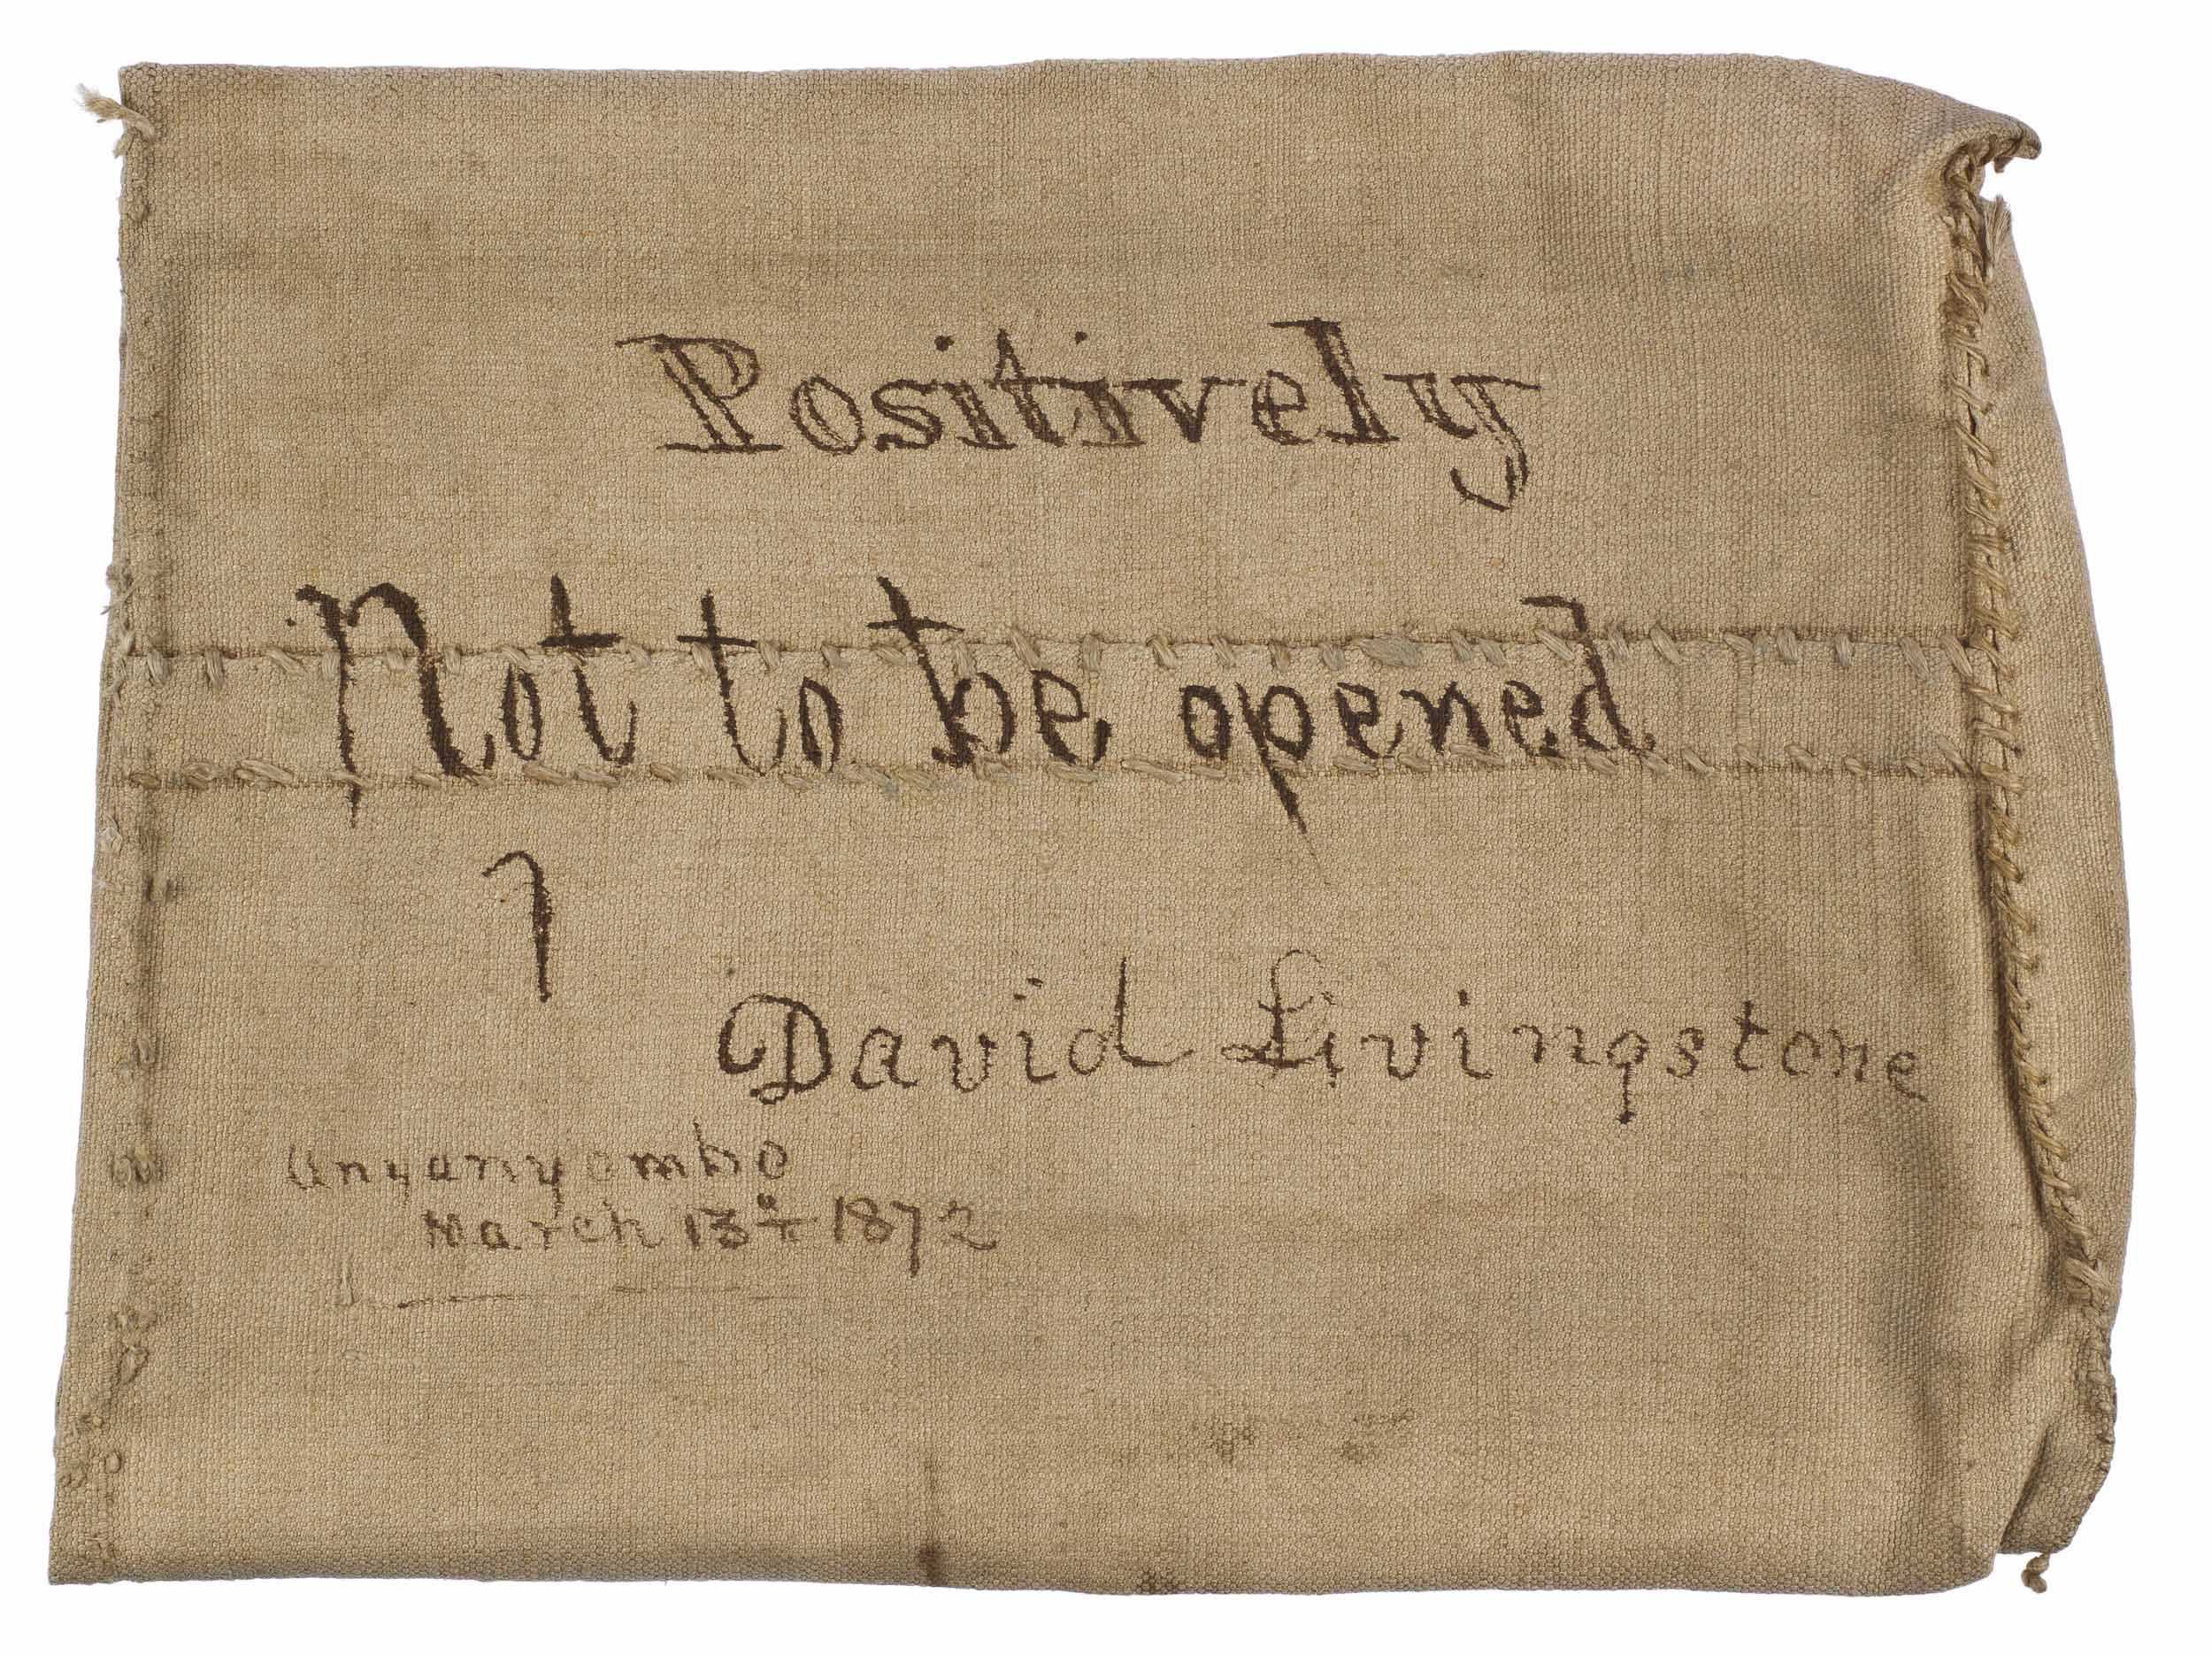 Positively
Not to be opened
David Livingstone
Unyanyembo
March 13th 1872